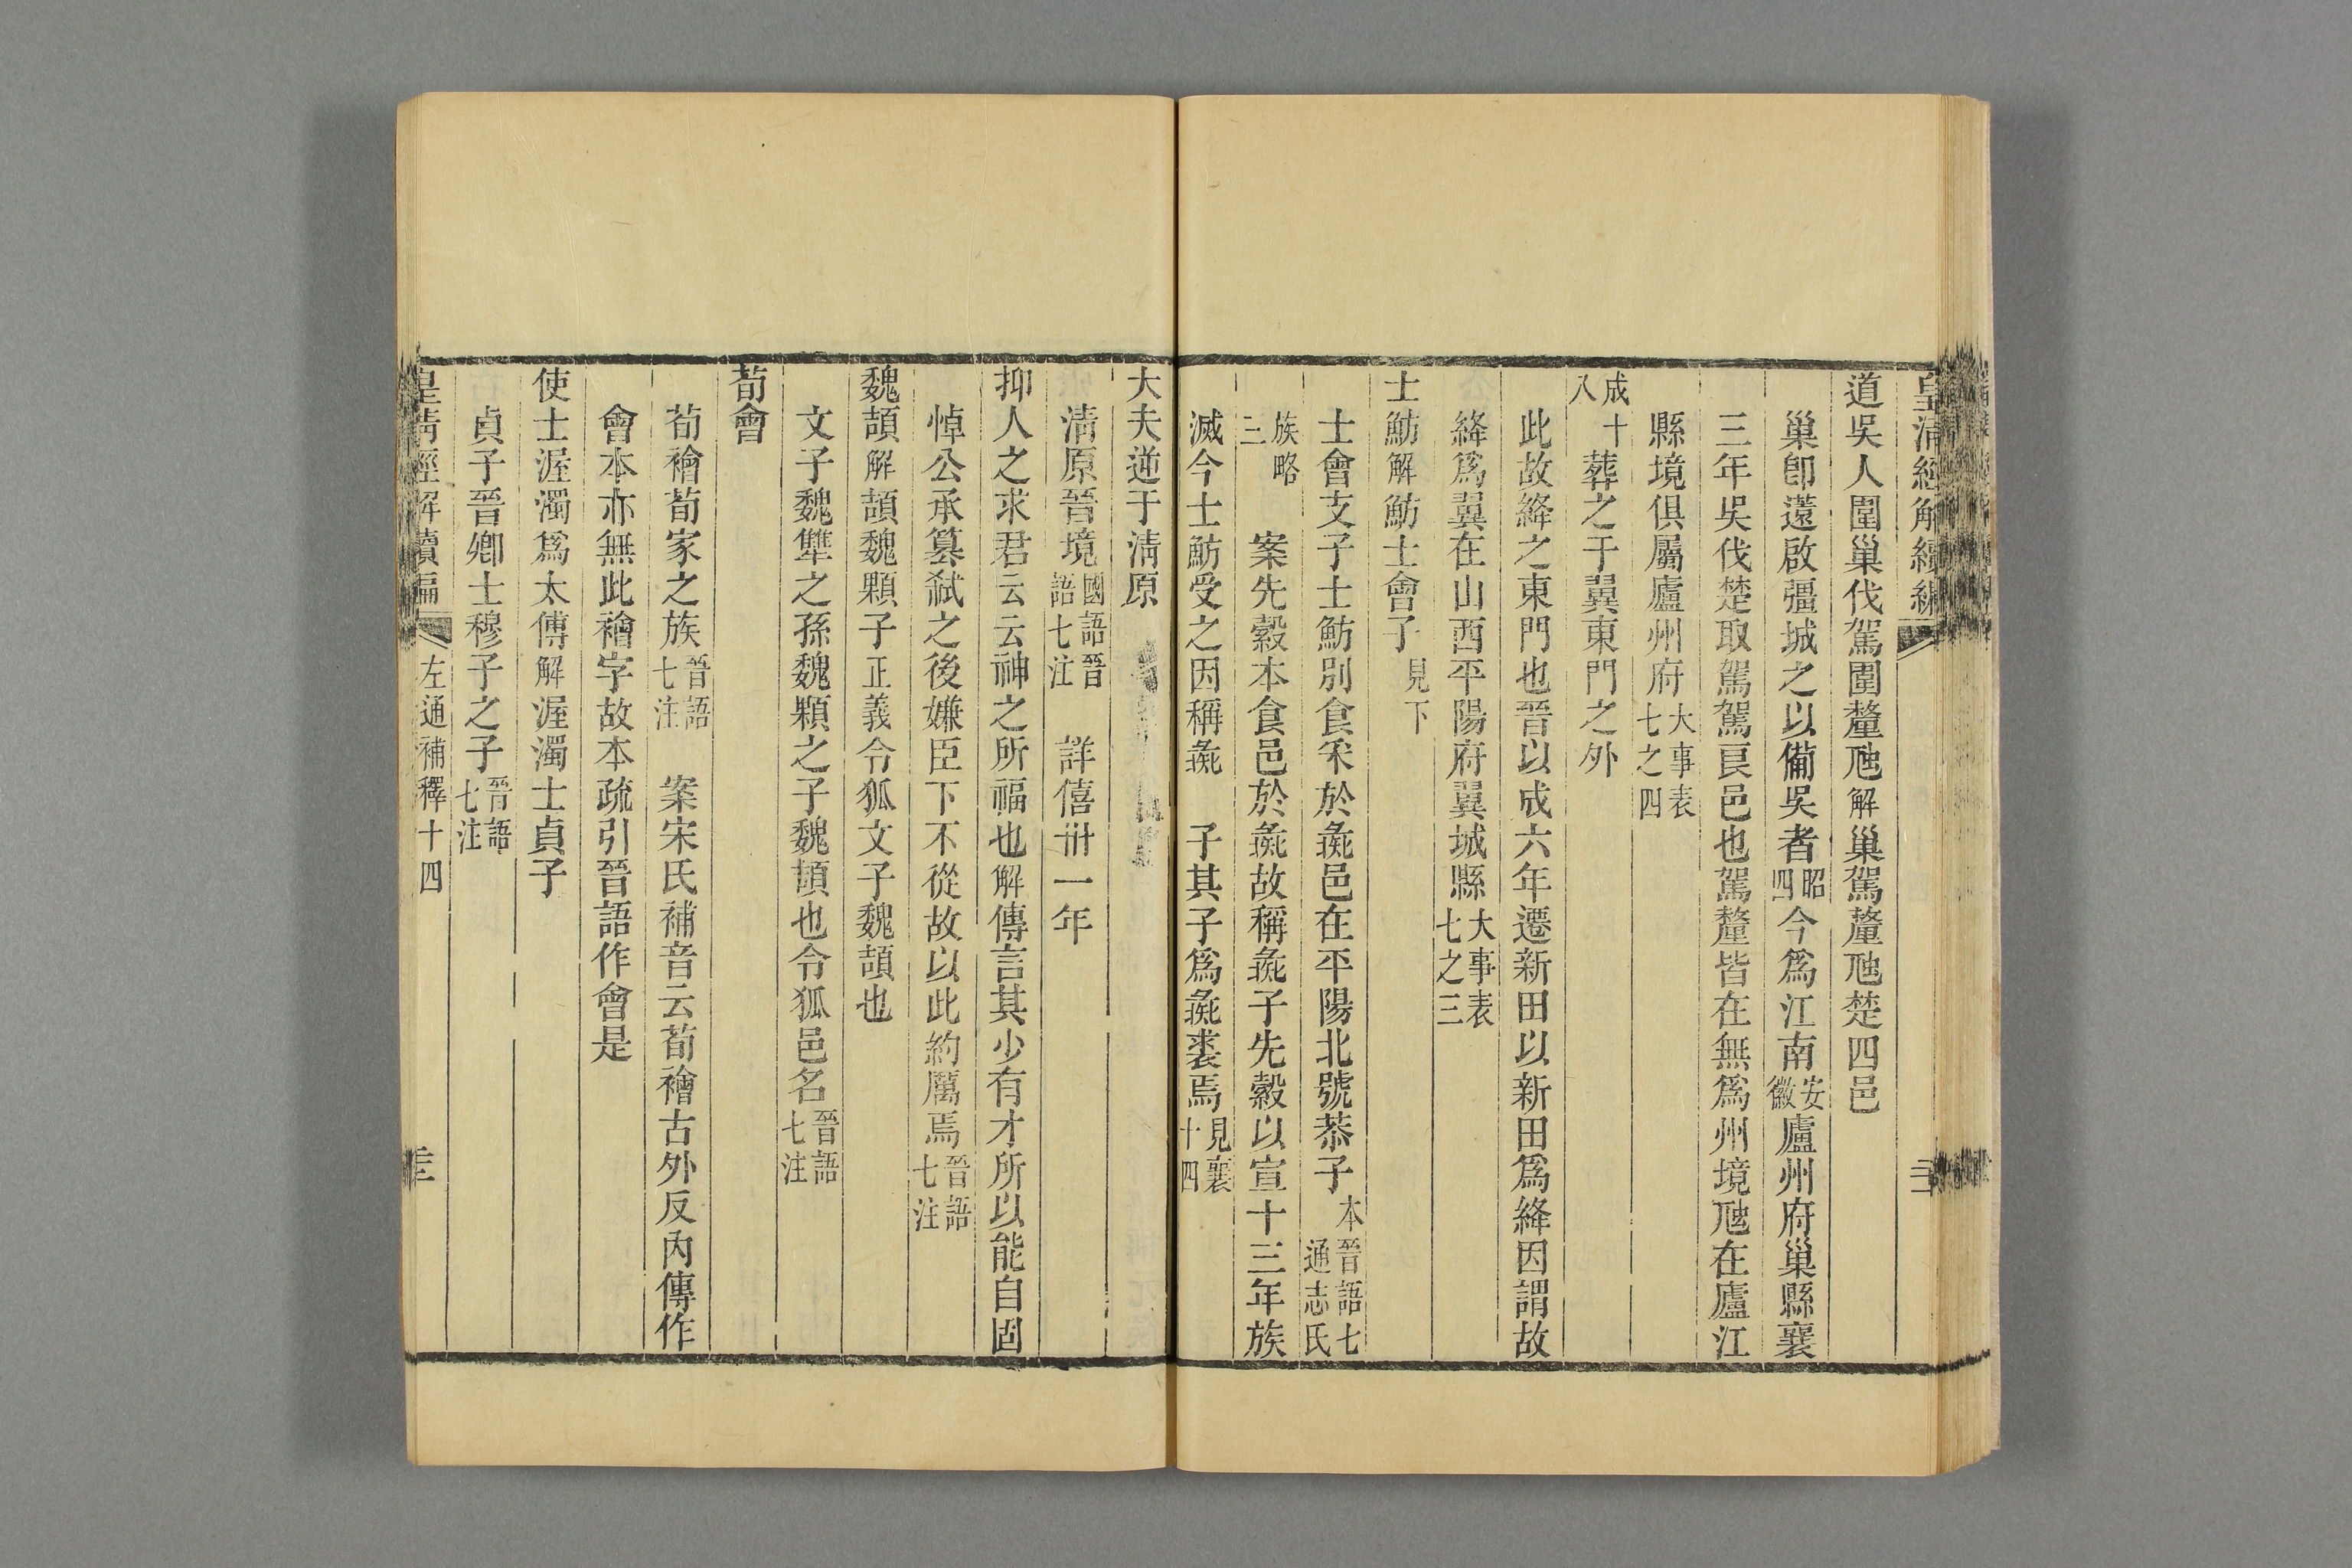 皇清經解續編
道吳人圍巢伐駕圍釐虺解巢駕釐虺楚四邑
巢卽薳啟彊城之以備吳者昭四今爲江南安徽廬州府巢縣襄
三年吳伐楚取駕駕良邑也駕釐皆在無爲州境虺在廬江
縣境俱屬廬州府大事表七之四
成十八葬之于翼東門之外
此故絳之東門也晉以成六年遷新田以新田爲絳因謂故
絳爲翼在山西平陽府翼城縣大事表七之三
士魴解魴士會子見下
士會支子士魴別食釆於彘邑在平陽北號恭子本晉語七通志氏
族略三案先縠本食邑於彘故稱彘子先縠以宣十三年族
滅今士魴受之因稱彘子其子爲彘裘焉見襄十四
大夫逆于淸原
淸原晉境國語晉語七注詳僖卅一年
抑人之求君云云神之所福也解傳言其少有才所以能自固
悼公承篡弒之後嫌臣下不從故以此約厲焉晉語七注
魏頡解頡魏顆子正義令狐文子魏頡也
文子魏犫之孫魏顆之子魏頡也令狐邑名晉語七注
荀會
荀襘荀家之族晉語七注案宋氏補音云荀襘古外反內傳作
會本亦無此襘字故本疏引晉語作會是
使士渥濁爲太傅解渥濁士貞子
貞子晉卿士穆子之子晉語七注
皇淸經解續編 左通補釋十四